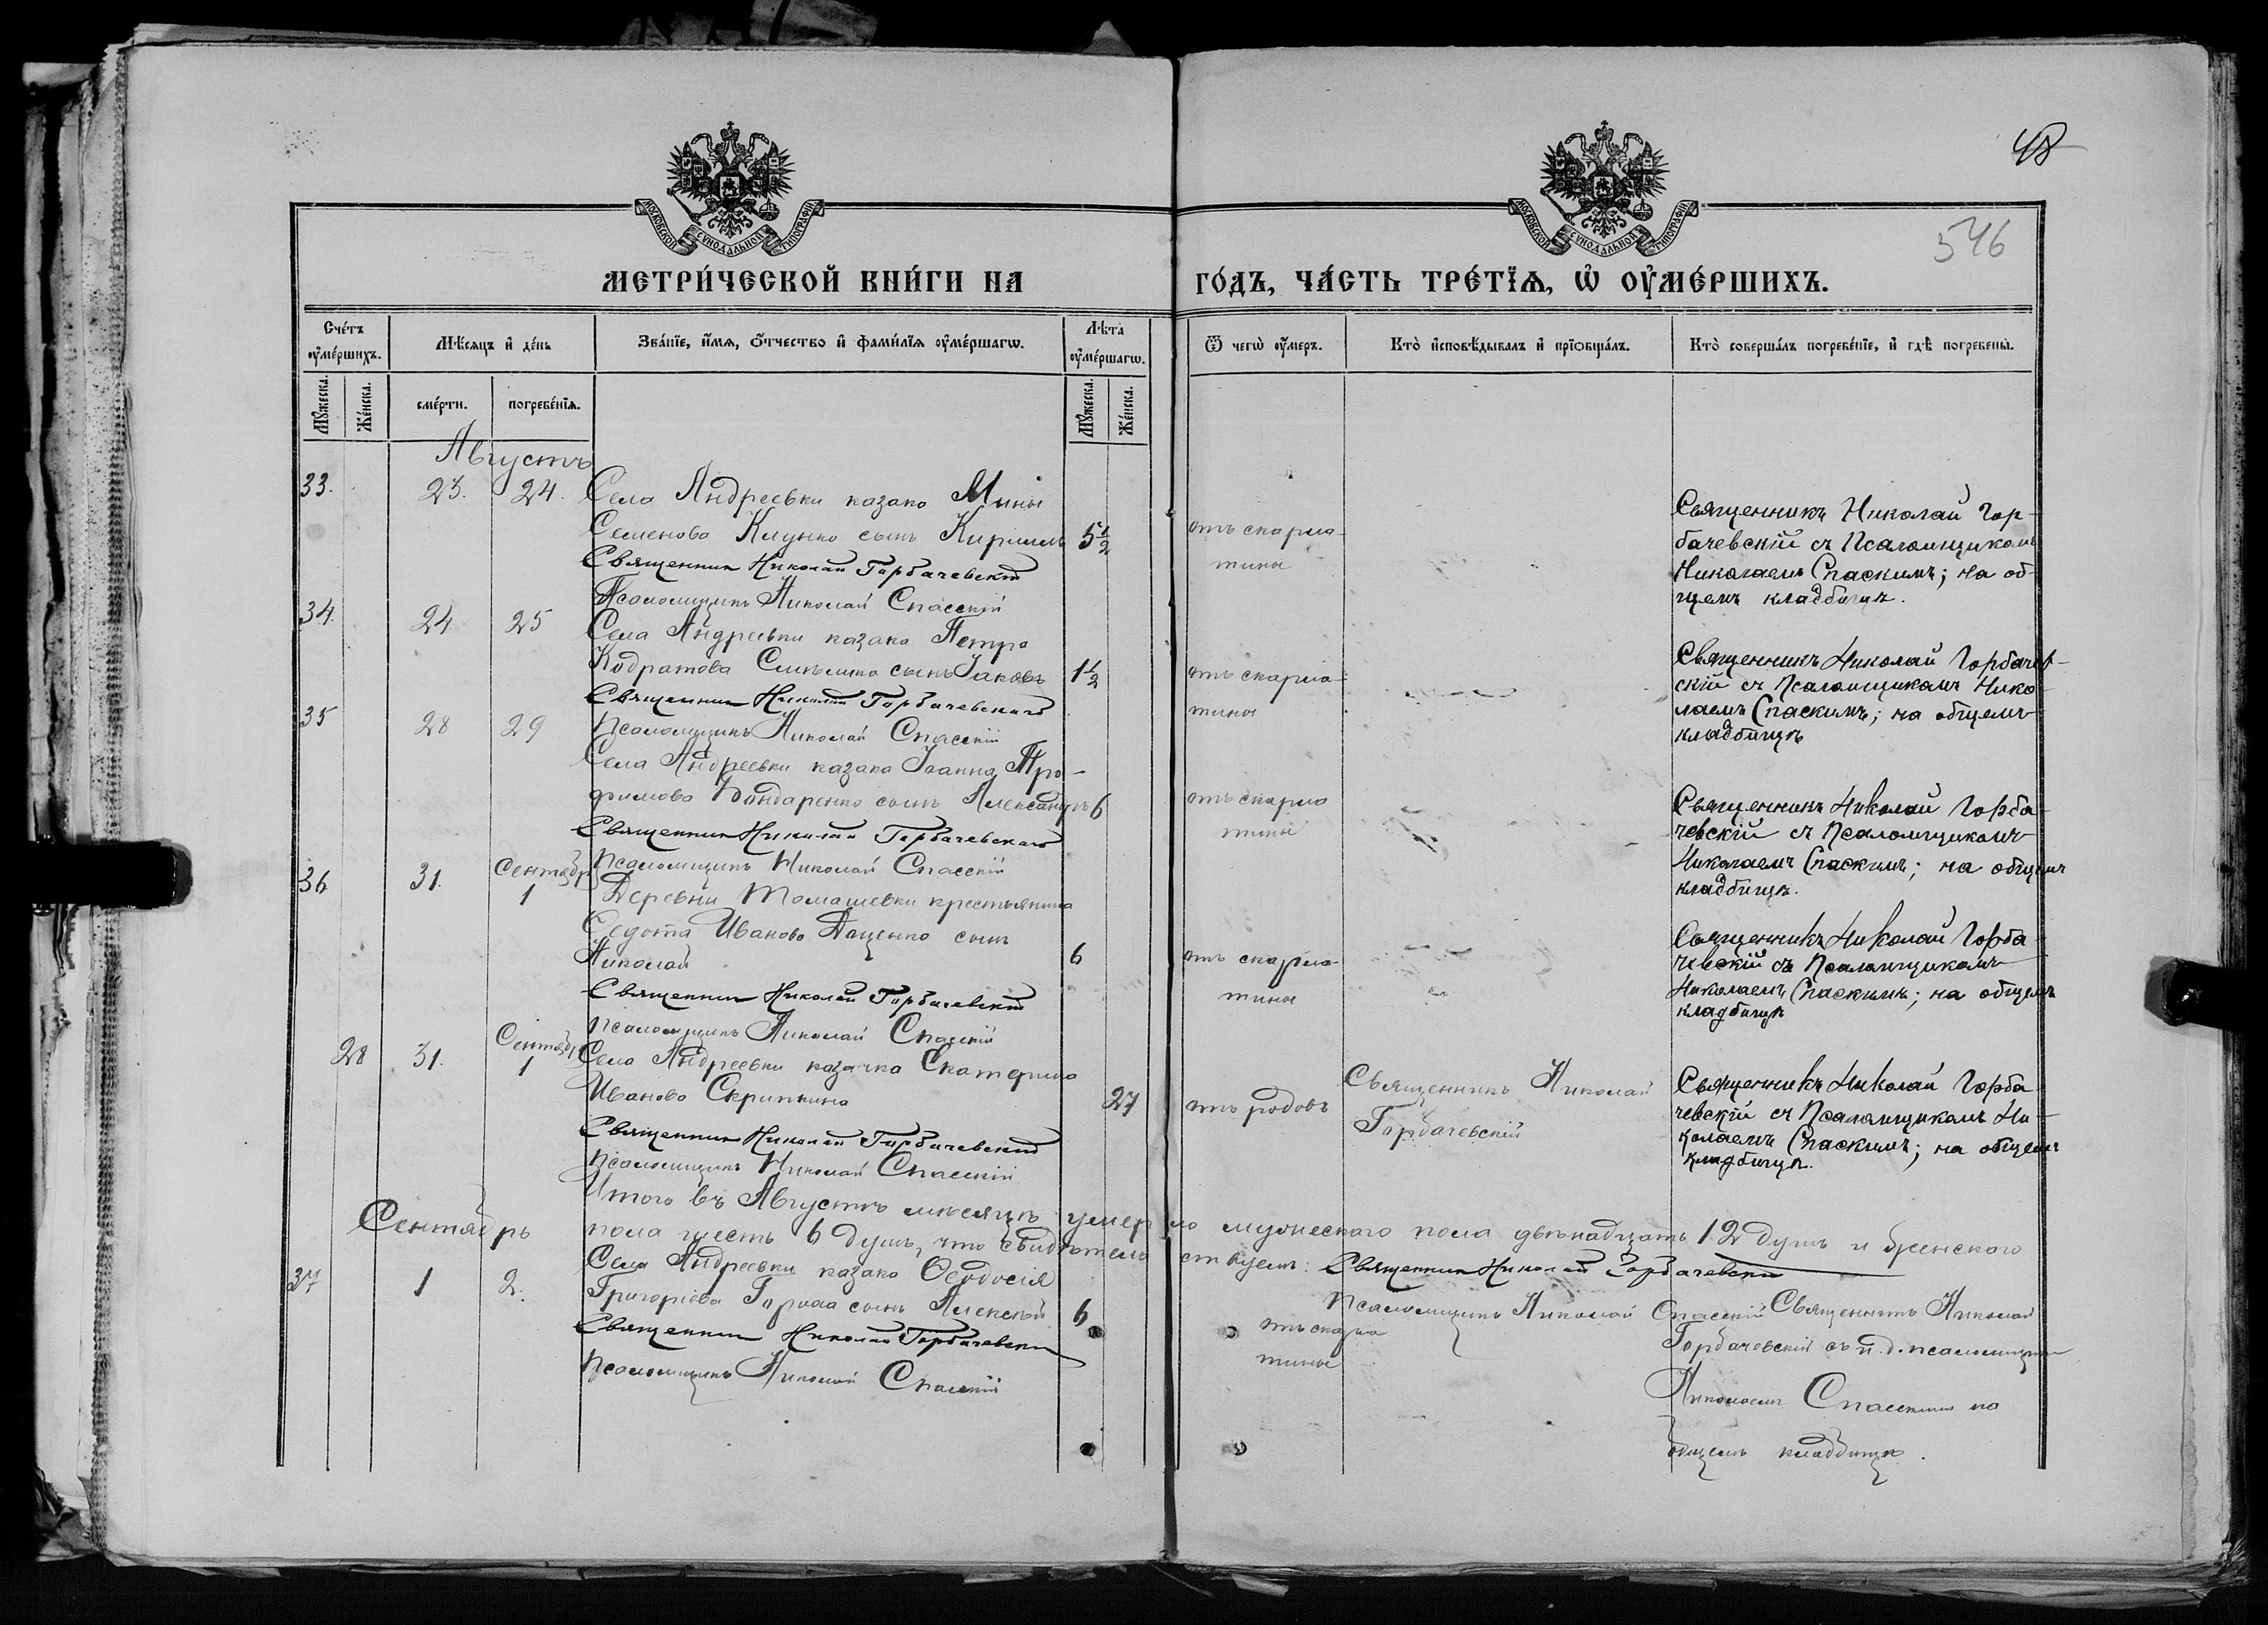 48
546
МОСКОВСКОЙ СѴНОДАЛЬНОЙ ТИПОГРАФІИ
МОСКОВСКОЙ СѴНОДАЛЬНОЙ ТИПОГРАФІИ
МЕТРИ́ЧЕСКОЙ КНИ́ГИ НА
ГО́ДЪ, ЧА́СТЬ ТРЕ́ТЇѦ, Ѡ҆ ОУ҆МЕ́РШИХЪ.
Сче́тъ оу҆ме́ршихъ.
Мѣ́сяцъ и҆ де́нь
Зва́нїе, и҆́мѧ, ѻ҆́тчество и҆ фами́лїѧ оу҆ме́ршагѡ.
Лѣ́та оу҆ме́ршагѡ.
Ѿ чегѡ̀ оу҆́меръ.
Кто̀ и҆сповѣ́дывалъ и҆ прїѻбща́лъ.
Кто̀ соверша́лъ погребе́нїе, и҆ гдѣ̀ погребены̀.
Мꙋ́жеска.
Же́нска.
сме́рти.
погребе́нїѧ.
Мꙋ́жеска.
Же́нска.
Августъ
33. 23. 24. Села Андреевки казака Мины
Семенова Клунко сынъ Кириллъ 5½
Священник Николай Горбачевскій
Псаломщикъ Николай Спасскій
отъ скарла-
тины
Священникъ Николай Гор-
бачевскій съ Псаломщикомъ
Николаемъ Спаскимъ; на об-
щемъ кладбищѣ.
34. 24 25 Села Андреевки казака Петра
Кодратова сынъ Іаковъ 1½
Священник Николай Горбачевскій
Псаломщикъ Николай Спасскій
отъ скарла-
тины
Священникъ Николай Горбачев-
скій съ Псаломщикомъ Нико-
лаемъ Спаскимъ; на общемъ
кладбищѣ
35 28 29
Села Андреевки казака Іоанна Тро-
фимова Бондаренко сынъ Александръ 6
Священник Николай Горбачевскій
Псаломщикъ Николай Спасскій
отъ скарла
тины
Священникъ Николай Горба-
чевскій съ Псаломщикомъ
Николаемъ Спаскимъ; на общемъ
кладбищѣ.
36 31. Сентябр 1 Деревни Томашевки крестьянина
Федота Иванова Даценко сынъ
Николай 6
Священник Николай Горбачевскій
Псаломщикъ Николай Спасскій
отъ скарла-
тины
Священникъ Николай Горба-
чевскій съ Псаломщикомъ
Николаемъ Спаскимъ; на общемъ
кладбищѣ
28 31. Сентябр 1 Села Андреевки казачка Екатерина
Иванова Скрипкина 27
Священник Николай Горбачевскій
Псаломщикъ Николай Спасскій
отъ родовъ
Священникъ Николай
Горбачевскій
Священникъ Николай Горба-
чевскій съ Псаломщикомъ Ни-
колаемъ Спаскимъ; на общемъ
кладбищѣ.
Итого въ Августѣ мѣсяцѣ умерло мужескаго пола двѣнадцать 12 душъ и женскаго
пола шесть 6 душъ, что свидѣтельствуемъ: Священник Николай Горбачевскій
Псаломщикъ Николай Спасскій
Сентябрь
37 1 2. Села Андреевки казака Ѳеодосія
Григоріева сынъ Алексѣй 6
Священник Николай Горбачевскій
Псаломщикъ Николай Спасскій
отъ скарла
тины
Священникъ Николай
Горбачевскій съ и. д. псаломщика
Николаемъ Спасскимъ на
общемъ кладбищѣ.